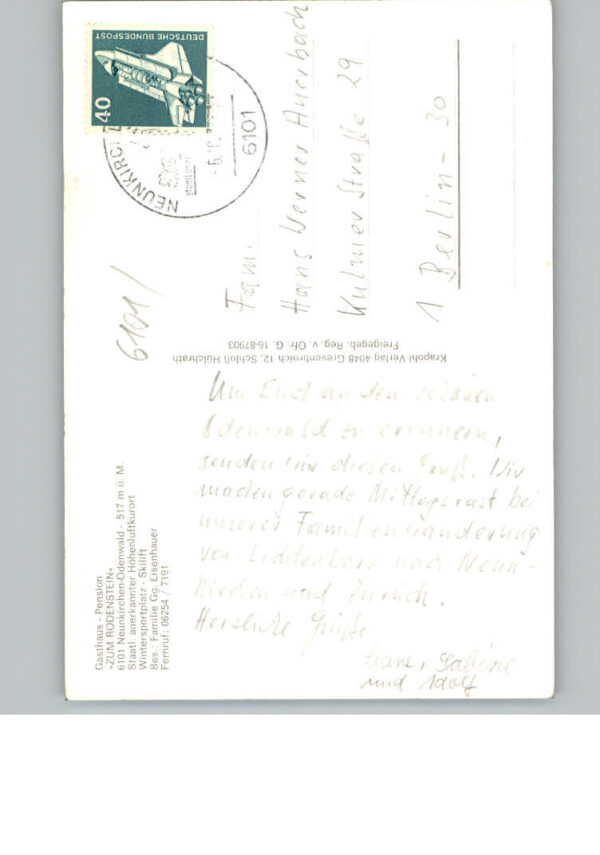 Gasthaus - Pension
»ZUM RODENSTEIN«
6101 Neunkirchen-Odenwald - 517 m ü. M.
Staatl. anerkannter Höhenluftkurort
Wintersportplatz - Skilift
Bes.: Familie Gg. Eisenhauer
Fernruf: 06254 / 7191
Um Euch an den schönen
Odenwald zu erinnern,
senden wir diesen Gruß. Wir
machen gerade Mittagsrast bei
unserer Familienwanderung
von Lichtenberg nach Neun-
kirchen und zurück.
Herzliche Grüße
Sabine
und Adolf
Krapohl-Verlag 4048 Grevenbroich 12, Schloß Hülchrath
Freigegeb. Reg. v. Ofr. G. 16-87903
6101/
DEUTSCHE BUNDESPOST
40
6101
NEUNKIRCHE
Fam.
Hans Werner Auerbach
Kulmer Straße 29
1 Berlin - 30